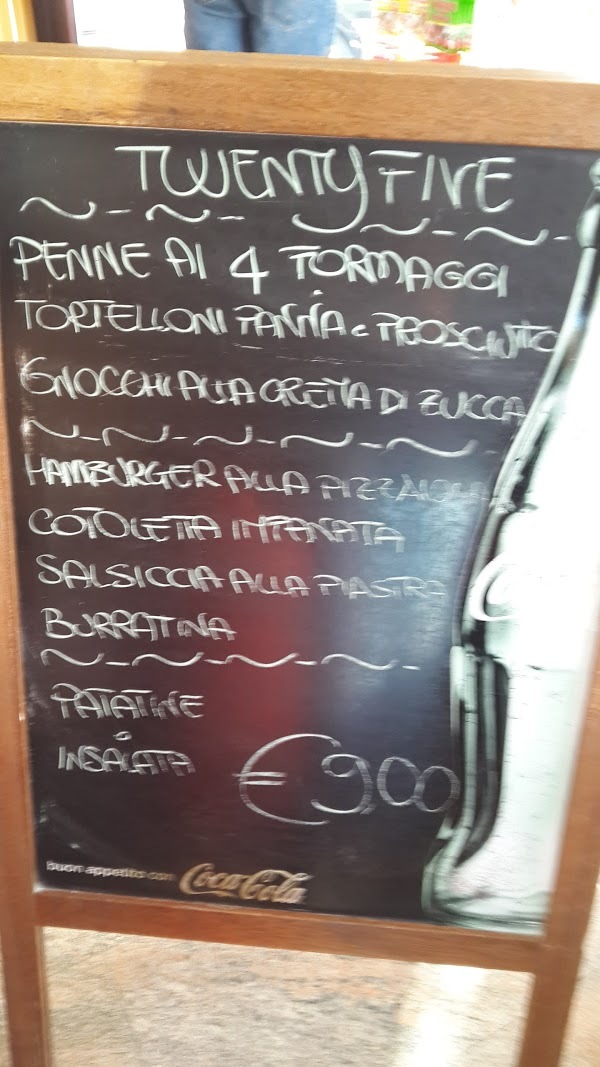 TWENTYFIVE
PENNE AI 4 FORMAGGI
TORTELLONI PANNA e PROSCIUTTO
GNOCCHI ALLA CREMA DI ZUCCA
HAMBURGER ALLA PIZZAIOLA
COTOLETTA IMPANATA
SALSICCIA ALLA PIASTRA
BURRATINA
PATATINE
o
INSALATA
€ 9,00
buon appetito con Coca-Cola